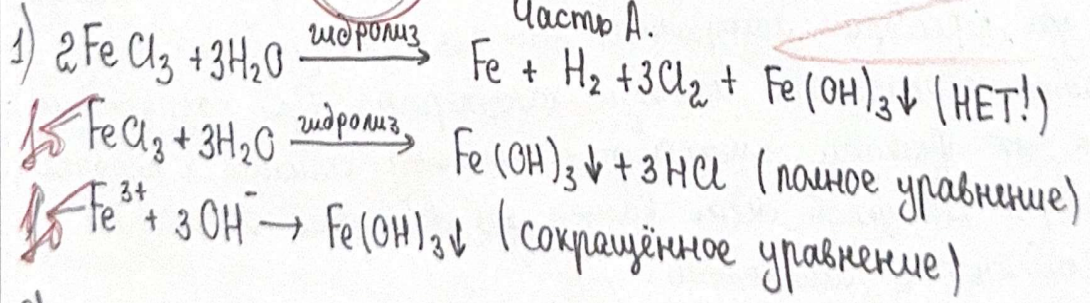 Часть А.
1) 2FeCl₃ + 3H₂O —гидролиз→ Fe + H₂ + 3Cl₂ + Fe(OH)₃↓ (НЕТ!)
1б FeCl₃ + 3H₂O —гидролиз→ Fe(OH)₃↓ + 3HCl (полное уравнение)
1б Fe³⁺ + 3OH⁻ → Fe(OH)₃↓ (сокращённое уравнение)